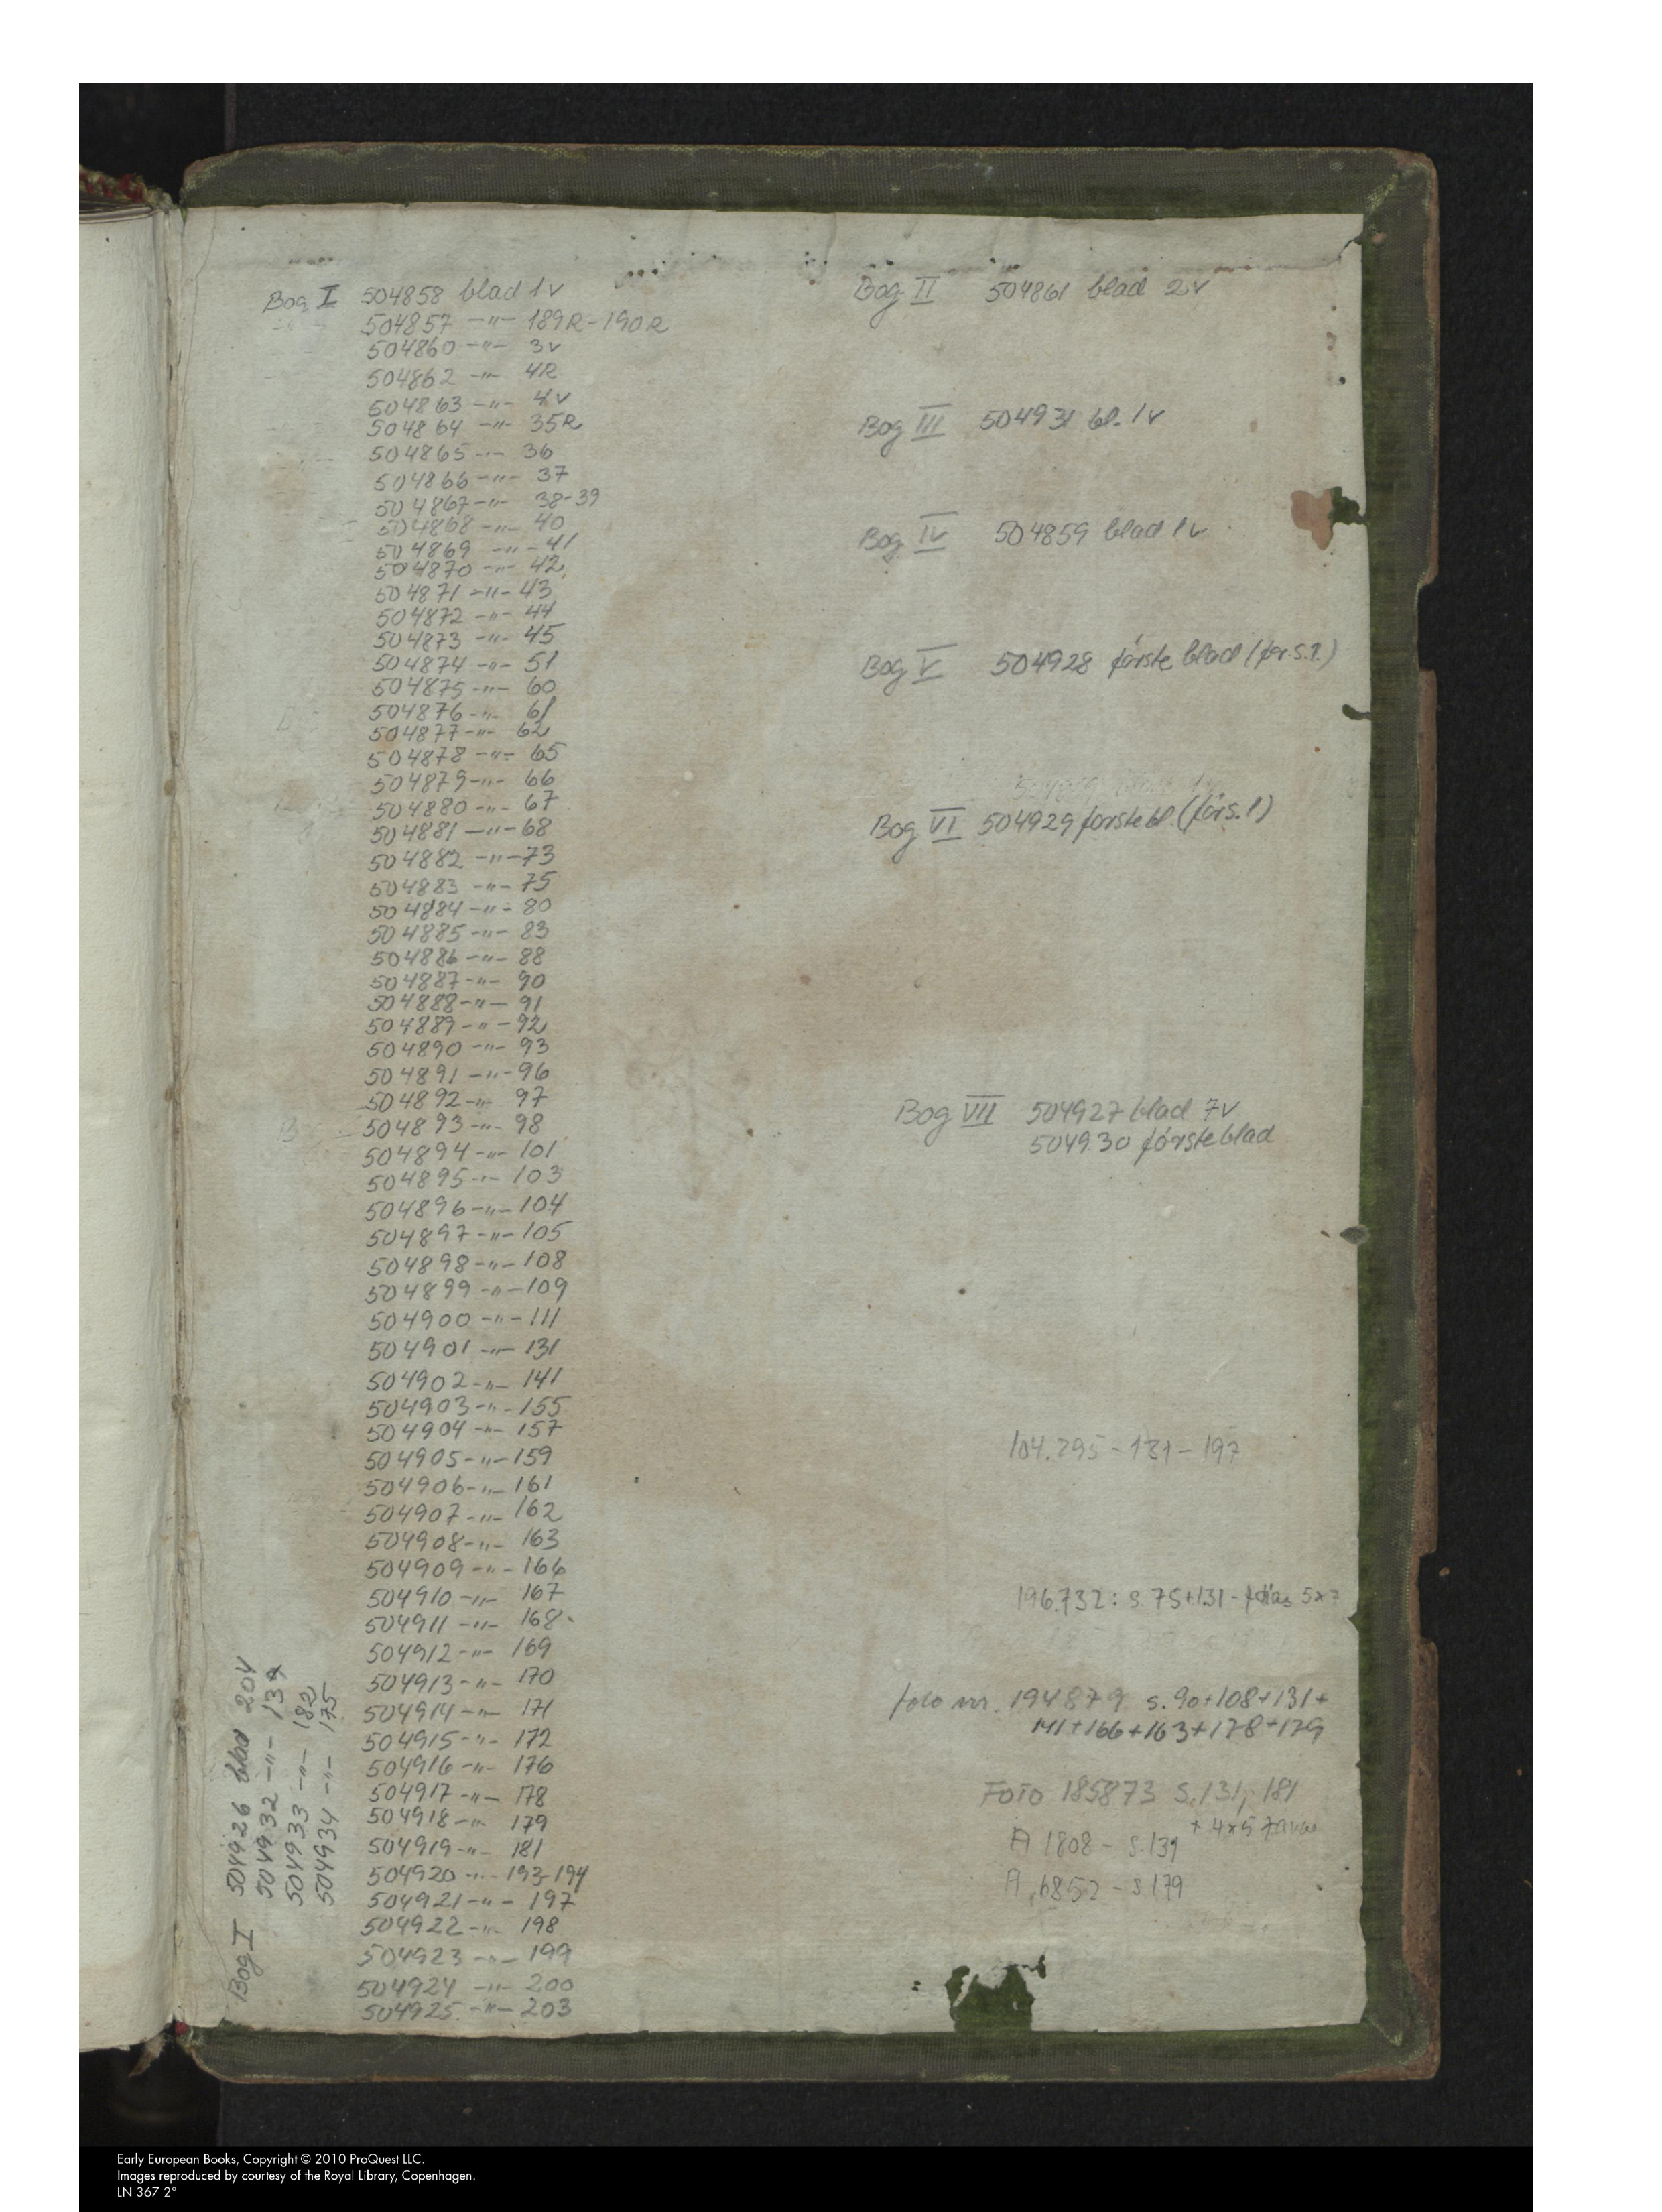 Bog I 504858 blad 1v
504857 -"- 189R-190R
504860 -"- 3v
504862 -"- 4R
504863 -"- 4v
504864 -"- 35R
504865 -"- 36
504866 -"- 37
504867 -"- 38-39
504868 -"- 40
504869 -"- 41
504870 -"- 42
504871 -"- 43
504872 -"- 44
504873 -"- 45
504874 -"- 51
504875 -"- 60
504876 -"- 61
504877 -"- 62
504878 -"- 65
504879 -"- 66
504880 -"- 67
504881 -"- 68
504882 -"- 73
504883 -"- 75
504884 -"- 80
504885 -"- 83
504886 -"- 88
504887 -"- 90
504888 -"- 91
504889 -"- 92
504890 -"- 93
504891 -"- 96
504892 -"- 97
504893 -"- 98
504894 -"- 101
504895 -"- 103
504896 -"- 104
504897 -"- 105
504898 -"- 108
504899 -"- 109
504900 -"- 111
504901 -"- 131
504902 -"- 141
504903 -"- 155
504904 -"- 157
504905 -"- 159
504906 -"- 161
504907 -"- 162
504908 -"- 163
504909 -"- 166
504910 -"- 167
504911 -"- 168
504912 -"- 169
504913 -"- 170
504914 -"- 171
504915 -"- 172
504916 -"- 176
504917 -"- 178
504918 -"- 179
504919 -"- 181
504920 -"- 193-194
504921 -"- 197
504922 -"- 198
504923 -"- 199
504924 -"- 200
504925 -"- 203
Bog I 504926 blad 204
504932 -"-
504933 -"- 182
504934 -"- 175
Bog II 504861 blad 2v
Bog III 504931 bl. 1v
Bog IV 504859 blad 1v
Bog V 504928 første blad (før.s.1.)
Bog VI 504929 første bl (før s.1)
Bog VII 504927 blad 7v
504930 første blad
104.295 - 131 - 197
196.732: s. 75+131 - 5x7
foto nr. 194879 s. 90+108+131+
141+166+163+178+179
FOTO 185873 S. 131, 181
+ 4x5
A 1808 - S. 139
A 6852 - S 179
Early European Books, Copyright © 2010 ProQuest LLC.
Images reproduced by courtesy of the Royal Library, Copenhagen.
LN 367 2°